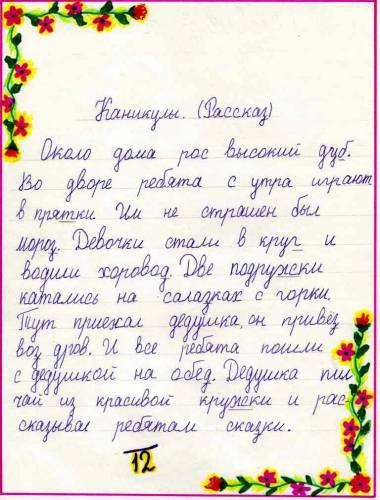 Каникулы. (Рассказ)
Около дома рос высокий дуб.
Во дворе ребята с утра играют
в прятки Им не страшен был
мороз. Девочки стали в круг и
водили хоровод. Две подружски
катались на салазках с горки.
Тут приехал дедушка, он привёз
воз дров. И все ребята пошли
с дедушкой на обед. Дедушка пил
чай из красивой кружски и рас-
сказывал ребятам сказки.
12